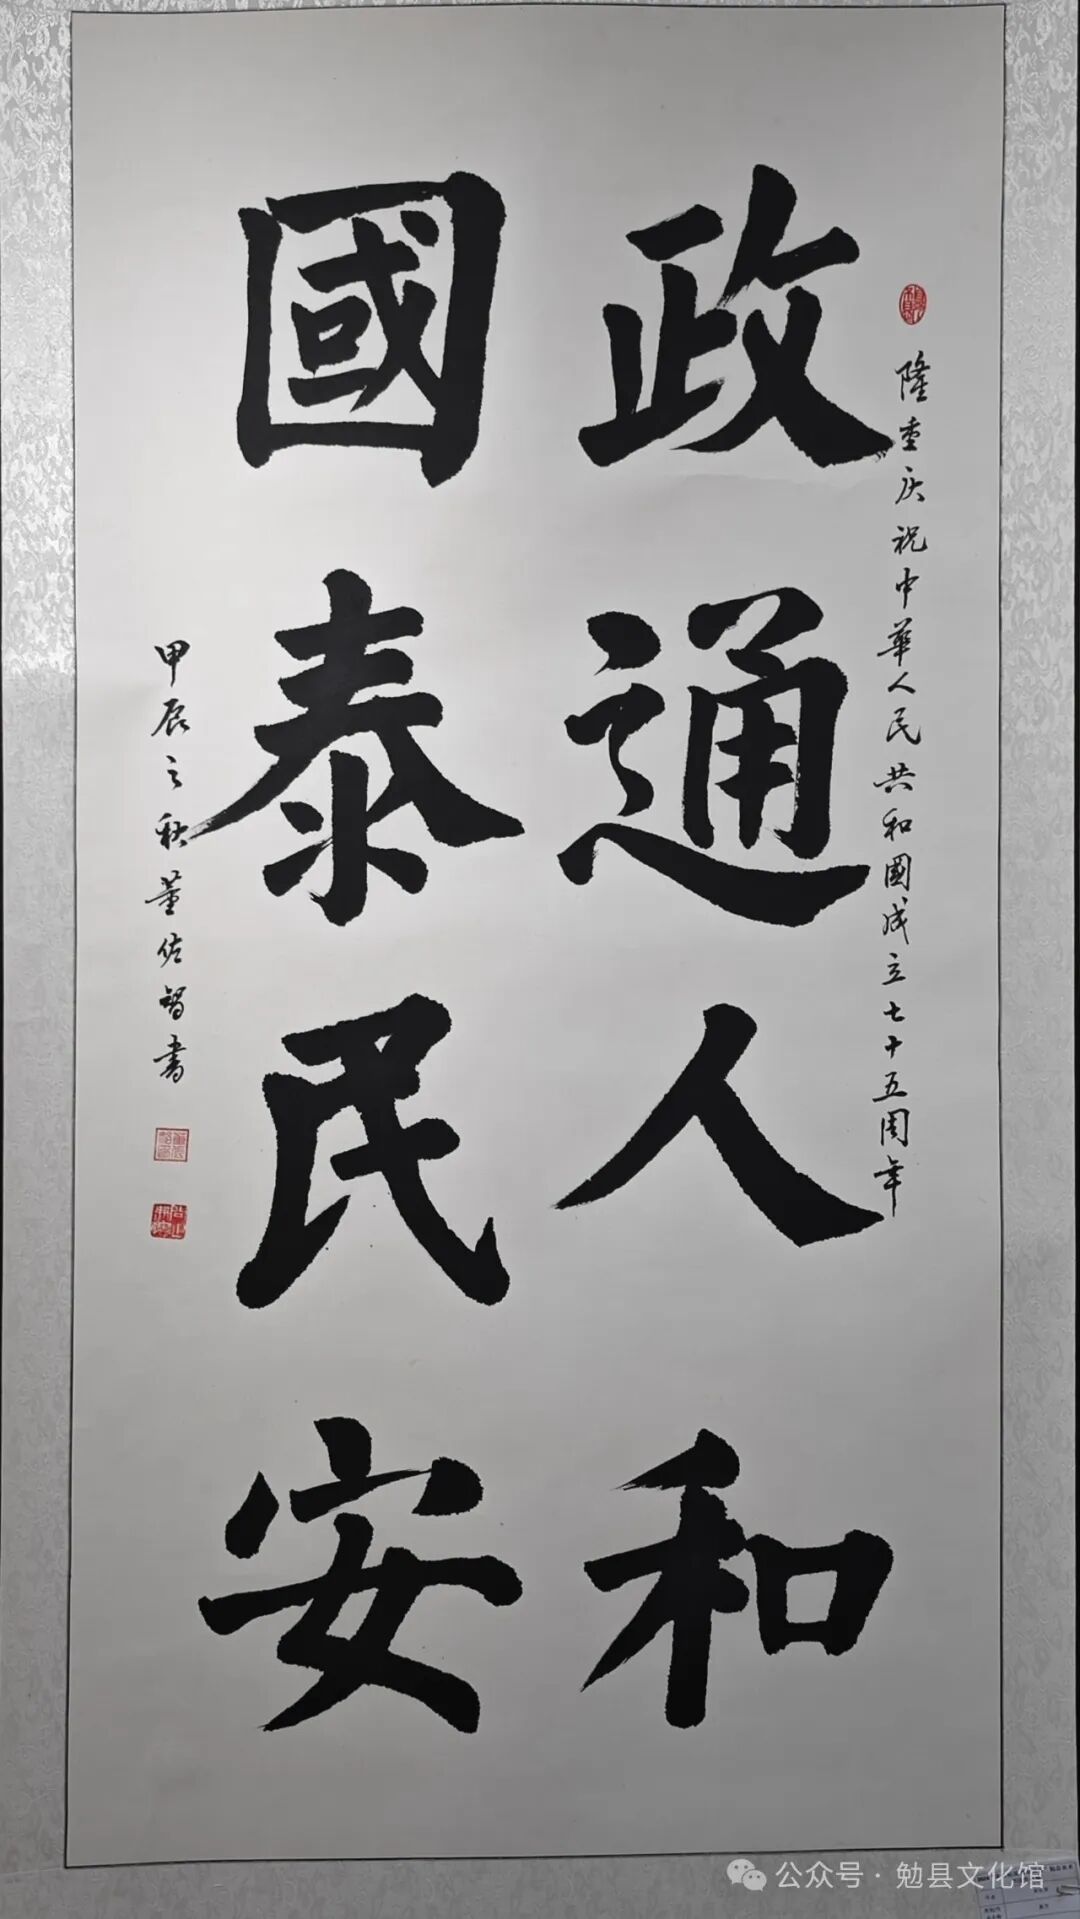 隆重庆祝中華人民共和國成立七十五周年
政通人和
國泰民安
甲辰之秋董佐智書
公众号·勉县文化馆